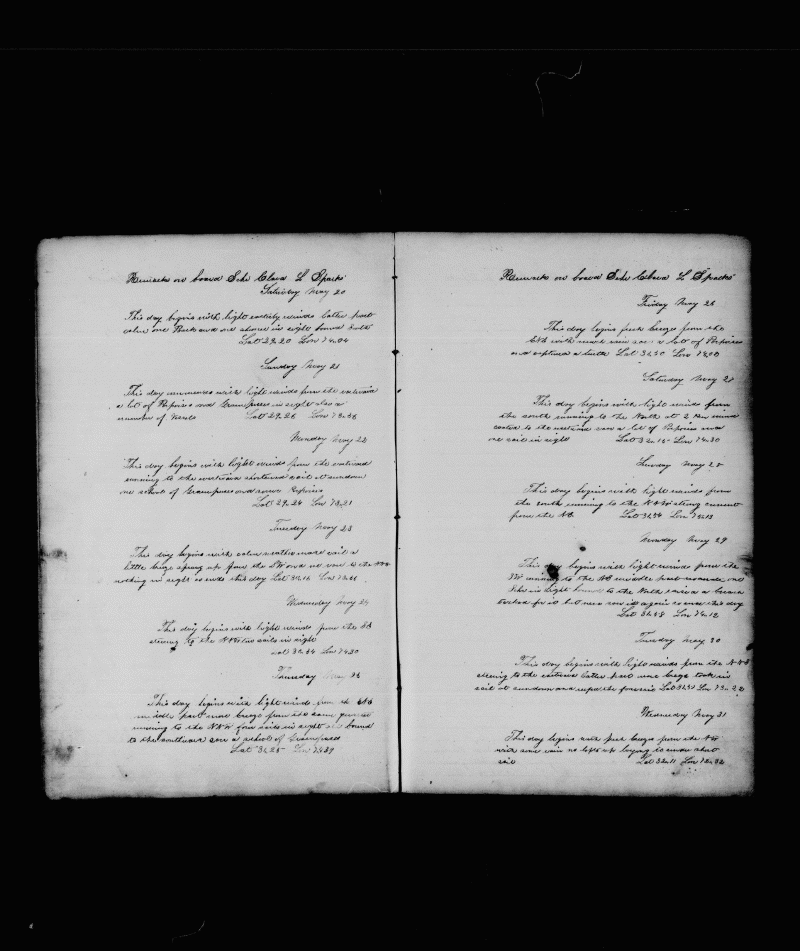 Remarks on board Schr Clara L Sparks
Saturday May 20
This day begins with light easterly winds Latter part
calm one Bark and one above in sight bound South
Lat 29.20 Lon 74.04
Sunday May 21
This day commences with light winds from the eastward
a lot of Porpoises and Grampuses in sight also a
number of
Lat 29.26 Lon 73.36
Monday May 22
This day begins with light winds from the eastward
running to the westward shortened sail at sundown
one school of Grampuses and some Porpoises
Lat 29.24 Lon 73.21
Tuesday May 23
This day begins with calm weather made sail a
little breeze sprang up from the SW and
nothing in sight so ends this day Lat 30.16 Lon
Wednesday May 24
This day begins with light winds from the SE
steering to the NNW two sails in sight
Lat 30.34 Lon 74.30
Thursday May 25
This day begins with light winds from the
middle part more breeze from the same
running to the NNW four sails in sight bound
to the southward saw a school of Grampuses
Lat 31.25 Lon 74.39
Remarks on board Schr Clara L Sparks
Friday May 26
This day begins fresh breeze from the
with much saw a lot of Porpoises
and captured a turtle Lat 31.50 Lon 74.00
Saturday May 27
This day begins with light winds from
the south running to the North at 2 P.M. wind
to the eastward saw a lot of Porpoises and
one sail in sight Lat 32.15 Lon 74.30
Sunday May 28
This day begins with light winds from
the south running to the strong current
from the NE Lat 31.54 Lon 74.13
Monday May 29
This day begins with light winds from the
SW running to the NE middle part one
Schr in sight bound to the North raised a
looked for it but never saw it again so ends this day
Lat 31.58 Lon 74.12
Tuesday May 30
This day begins with light winds from the
steering to the eastward Latter part more breeze took in
sail at sundown and reefed the foresail Lat 31.51 Lon 73.22
Wednesday May 31
This day begins with fresh breeze from the
with some rain no laying to under short
sail Lat 32.11 Lon 73.32